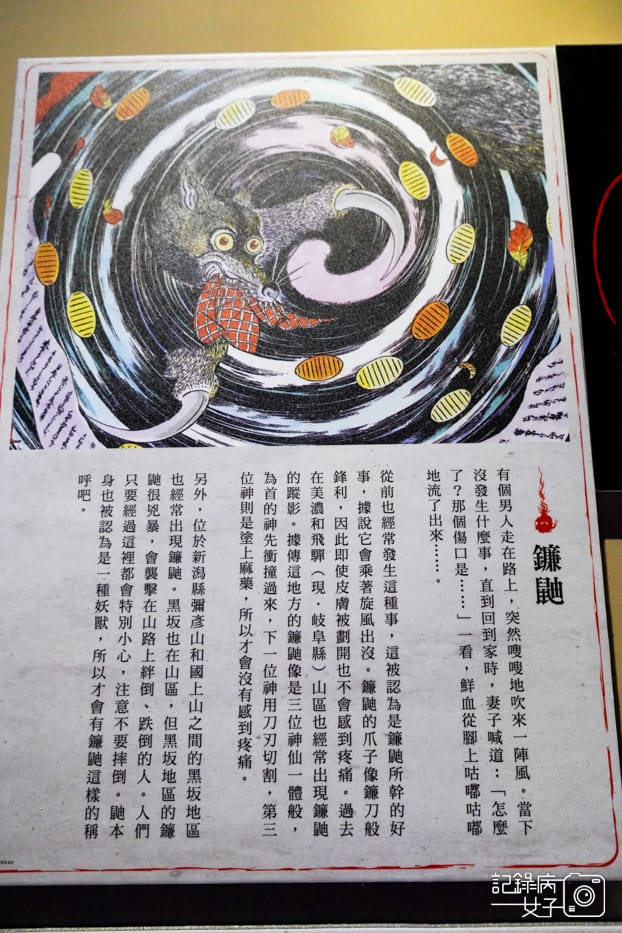 鐮鼬
有個男人走在路上，突然嗖嗖地吹來一陣風。當下
沒發生什麼事，直到回到家時，妻子喊道：「怎麼
了？那個傷口是……」一看，鮮血從腳上咕嘟咕嘟
地流了出來……。
從前也經常發生這種事，這被認為是鐮鼬所幹的好
事，據說它會乘著旋風出沒。鐮鼬的爪子像鐮刀般
鋒利，因此即使皮膚被劃開也不會感到疼痛。過去
在美濃和飛驒（現．岐阜縣）山區也經常出現鐮鼬
的蹤影。據傳這地方的鐮鼬像是三位神仙一體般，
為首的神先衝撞過來，下一位神用刀刃切割，第三
位神則是塗上麻藥，所以才會沒有感到疼痛。
另外，位於新潟縣彌彥山和國上山之間的黑坂地區
也經常出現鐮鼬。黑坂也在山區，但黑坂地區的鐮
鼬很兇暴，會襲擊在山路上絆倒、跌倒的人。人們
只要經過這裡都會特別小心，注意不要摔倒。鼬本
身也被認為是一種妖獸，所以才會有鐮鼬這樣的稱
呼吧。
記錄病
女子